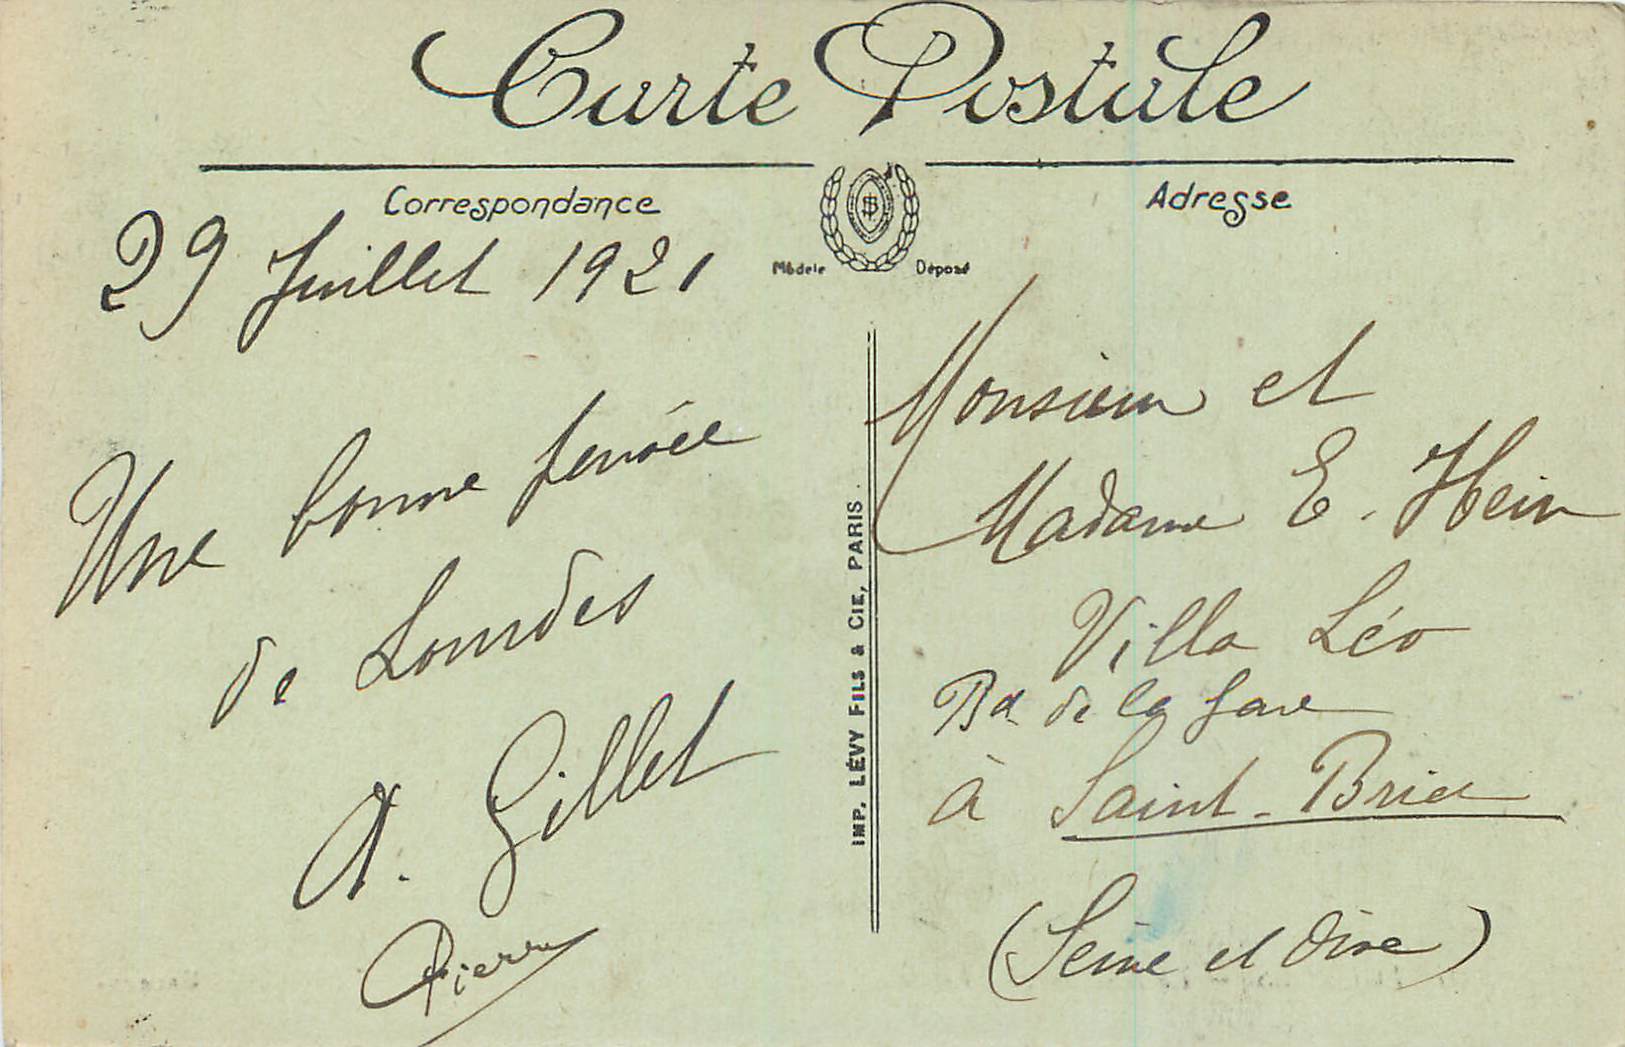 Carte Postale
Correspondance
Adresse
Modèle Déposé
29 Juillet 1921
Une bonne pensée
de Lourdes
A. Gillet
Pierre
IMP. LÉVY FILS & CIE, PARIS.
Monsieur et
Madame E. Hein
Villa Léo
Bd de la gare
à Saint-Brice
(Seine et Oise)